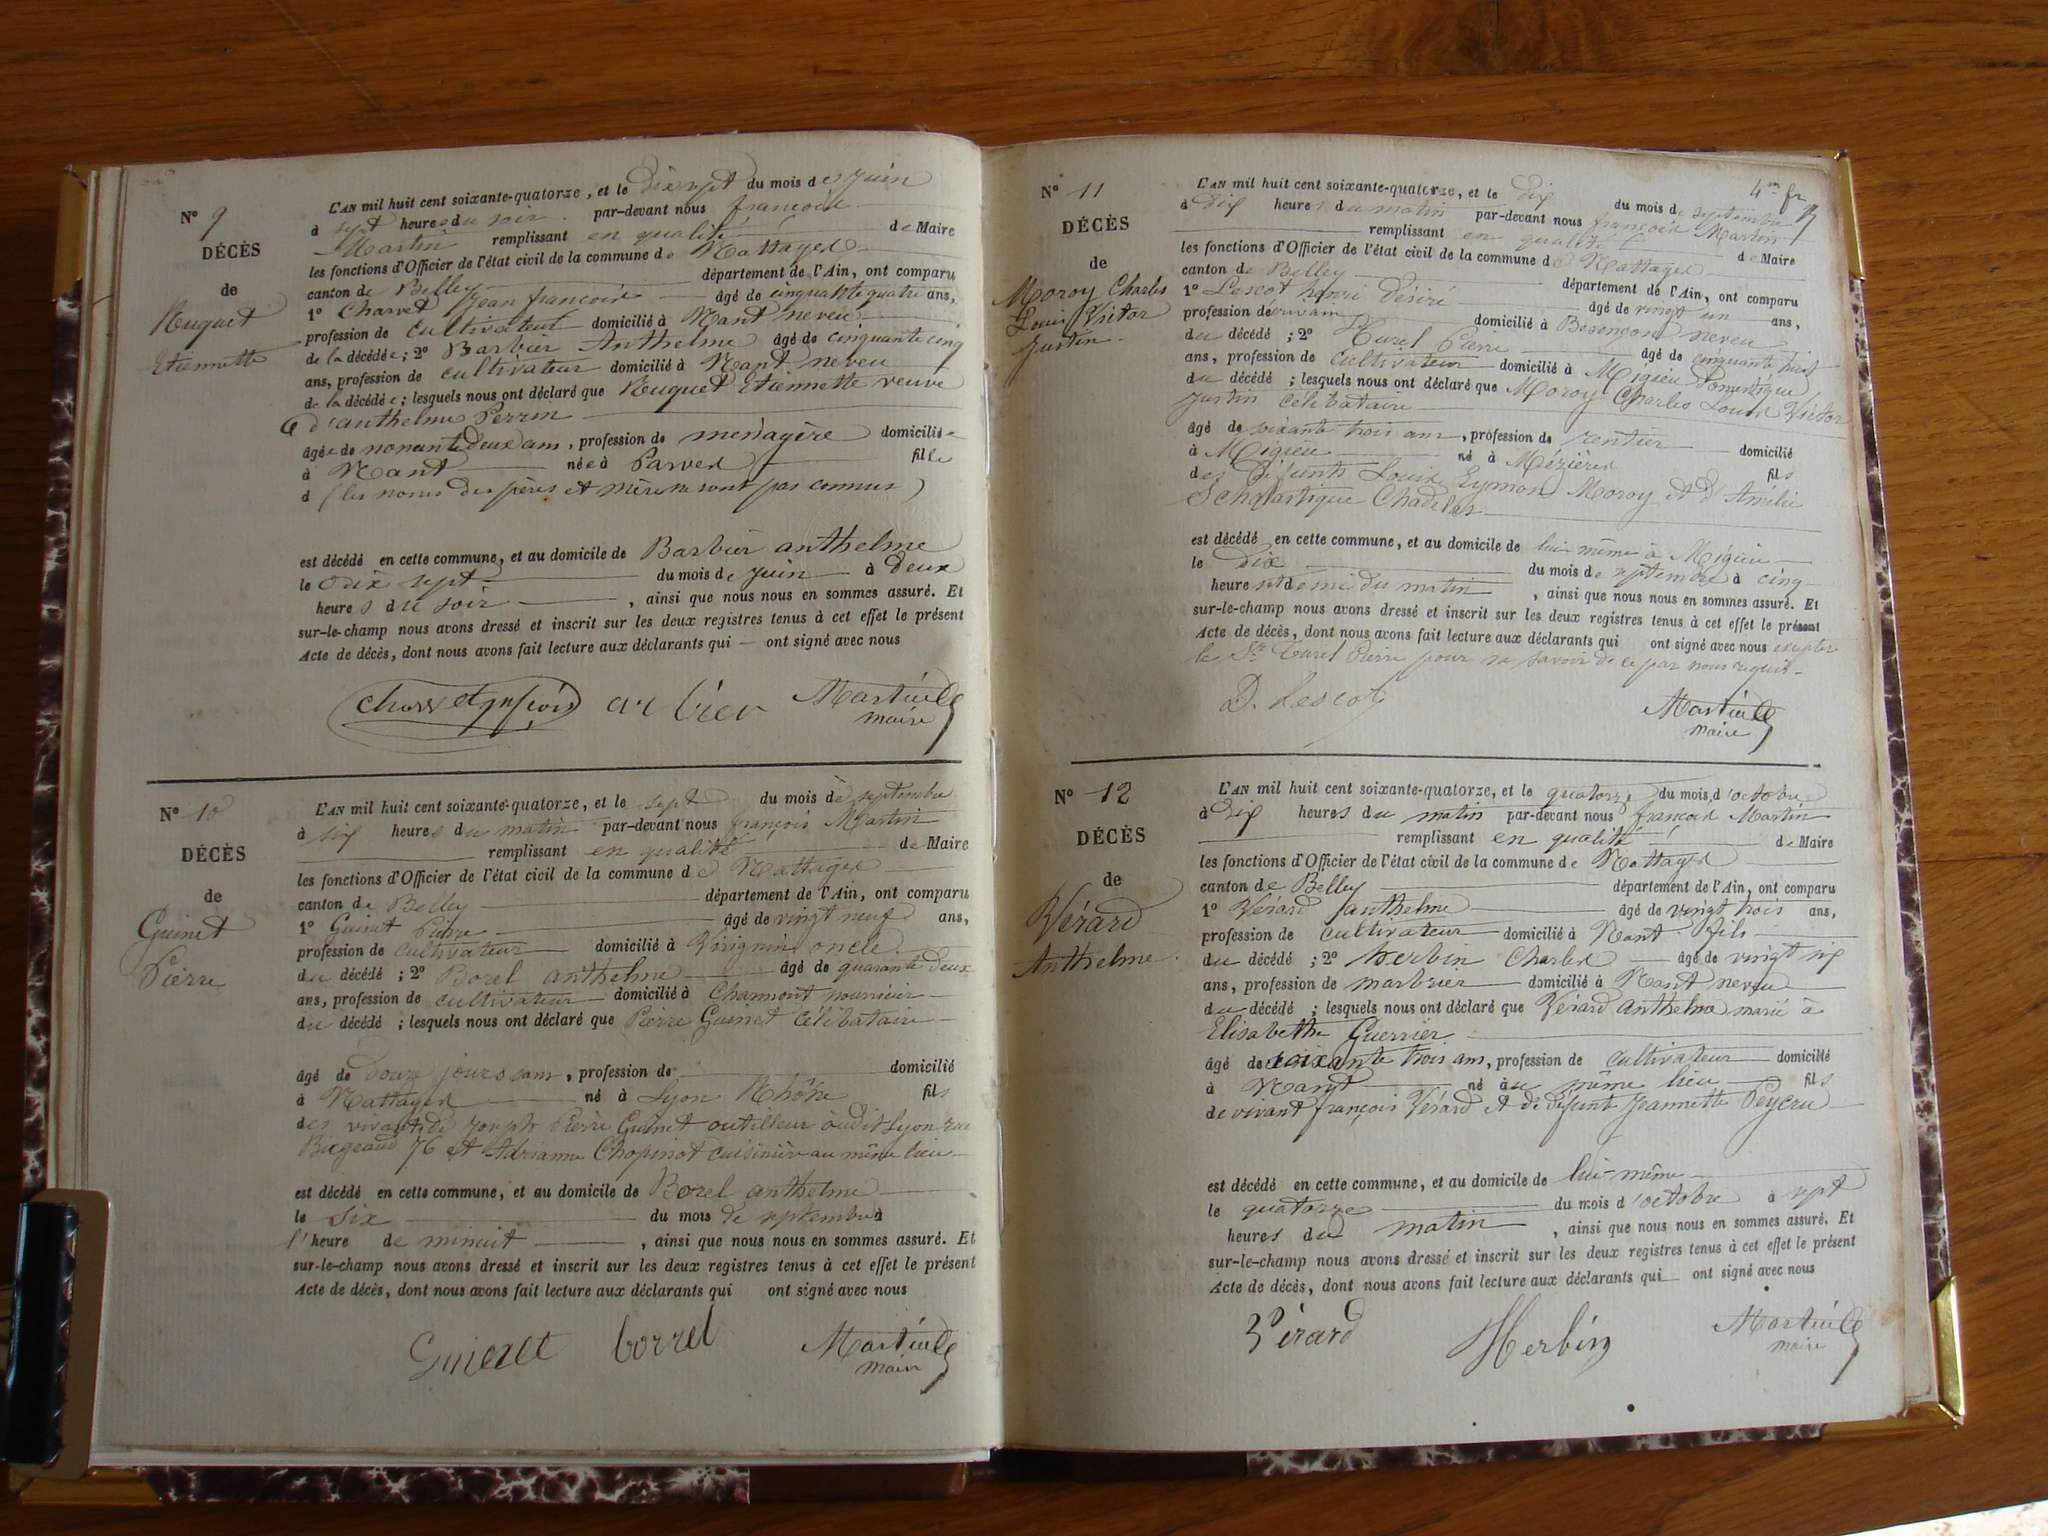 N° 9
DÉCÈS
de
Nuguet
Etiennette
L'AN mil huit cent soixante-quatorze, et le dix sept du mois de Juin
à sept heures du soir par-devant nous françois
Martin remplissant en qualité de Maire
les fonctions d'Officier de l'état civil de la commune de Nattages
canton de Belley département de l'Ain, ont comparu
1° Charvet Jean françois âgé de cinquante quatre ans,
profession de cultivateur domicilié à Nant neveu
de la décédée; 2° Barbier Anthelme âgé de cinquante cinq
ans, profession de cultivateur domicilié à Nant neveu
de la décédée; lesquels nous ont déclaré que Nuguet Etiennette veuve
d'anthelme Perrin
âgée de nonante deux ans, profession de ménagère domiciliée
à Nant née à Parves fille
d (les noms des pères et mère ne sont pas connus)
est décédé en cette commune, et au domicile de Barbier anthelme
le dix sept du mois de Juin à deux
heures du soir, ainsi que nous nous en sommes assuré. Et
sur-le-champ nous avons dressé et inscrit sur les deux registres tenus à cet effet le présent
Acte de décès, dont nous avons fait lecture aux déclarants qui ont signé avec nous
maire
N° 10
DÉCÈS
de
Guinet
Pierre
L'AN mil huit cent soixante-quatorze, et le sept du mois de septembre
à six heures du matin par-devant nous françois Martin
remplissant en qualité de Maire
les fonctions d'Officier de l'état civil de la commune de Nattages
canton de Belley département de l'Ain, ont comparu
1° Guinet Pierre âgé de vingt neuf ans,
profession de cultivateur domicilié à Virignin oncle
du décédé; 2° Borel anthelme âgé de quarante deux
ans, profession de cultivateur domicilié à Charmont nourricier
du décédé; lesquels nous ont déclaré que Pierre Guinet célibataire
âgé de douze jours sans, profession de domicilié
à Nattages né à Lyon Rhône fils
des vivants de Joseph Pierre Guinet outilleur audit Lyon rue
Bugeaud 76 et Adrianne Chopinot cuisinière au même lieu
est décédé en cette commune, et au domicile de Borel anthelme
le six du mois de septembre à
l'heure de minuit, ainsi que nous nous en sommes assuré. Et
sur-le-champ nous avons dressé et inscrit sur les deux registres tenus à cet effet le présent
Acte de décès, dont nous avons fait lecture aux déclarants qui ont signé avec nous
Guinet borrel
maire
N° 11
DÉCÈS
de
Moroy Charles
Louis Victor
Justin
L'AN mil huit cent soixante-quatorze, et le dix du mois de septembre
à dix heures du matin par-devant nous françois Martin
remplissant en qualité de Maire
les fonctions d'Officier de l'état civil de la commune de Nattages
canton de Belley département de l'Ain, ont comparu
1° Lescot henri Désiré âgé de vingt un ans,
profession domicilié à Besançon neveu
du décédé; 2° Curel Pierre âgé de cinquante huit
ans, profession de cultivateur domicilié à Migieu Domestique
du décédé; lesquels nous ont déclaré que Moroy Charles Louis Victor
Justin célibataire
âgé de soixante trois ans, profession de rentier domicilié
à Migieu né à Mézières fils
des Défunts Louis Eymon Moroy et d'Amélie
Scholastique
est décédé en cette commune, et au domicile de lui même à Migieu
le Dix du mois de septembre à cinq
heures et demi du matin, ainsi que nous nous en sommes assuré. Et
sur-le-champ nous avons dressé et inscrit sur les deux registres tenus à cet effet le présent
Acte de décès, dont nous avons fait lecture aux déclarants qui ont signé avec nous excepter
le Sr Curel Pierre pour ne savoir de ce par nous requis
D. Lescot
maire
N° 12
DÉCÈS
de
Vérard
Anthelme
L'AN mil huit cent soixante-quatorze, et le quatorze du mois d'octobre
à dix heures du matin par-devant nous françois Martin
remplissant en qualité de Maire
les fonctions d'Officier de l'état civil de la commune de Nattages
canton de Belley département de l'Ain, ont comparu
1° Vérard anthelme âgé de vingt trois ans,
profession de cultivateur domicilié à Nant fils
du décédé; 2° herbin Charles âgé de vingt six
ans, profession de marbrier domicilié à Nant neveu
du décédé; lesquels nous ont déclaré que Vérard Anthelme marié à
Elisabethe Guerrier
âgé de soixante trois ans, profession de cultivateur domicilié
à Nant né au même lieu fils
de vivant françois Vérard et de défunte Jeannette Peycru
est décédé en cette commune, et au domicile de lui-même
le quatorze du mois d'octobre à sept
heures du matin, ainsi que nous nous en sommes assuré. Et
sur-le-champ nous avons dressé et inscrit sur les deux registres tenus à cet effet le présent
Acte de décès, dont nous avons fait lecture aux déclarants qui ont signé avec nous
Vérard Herbin
maire